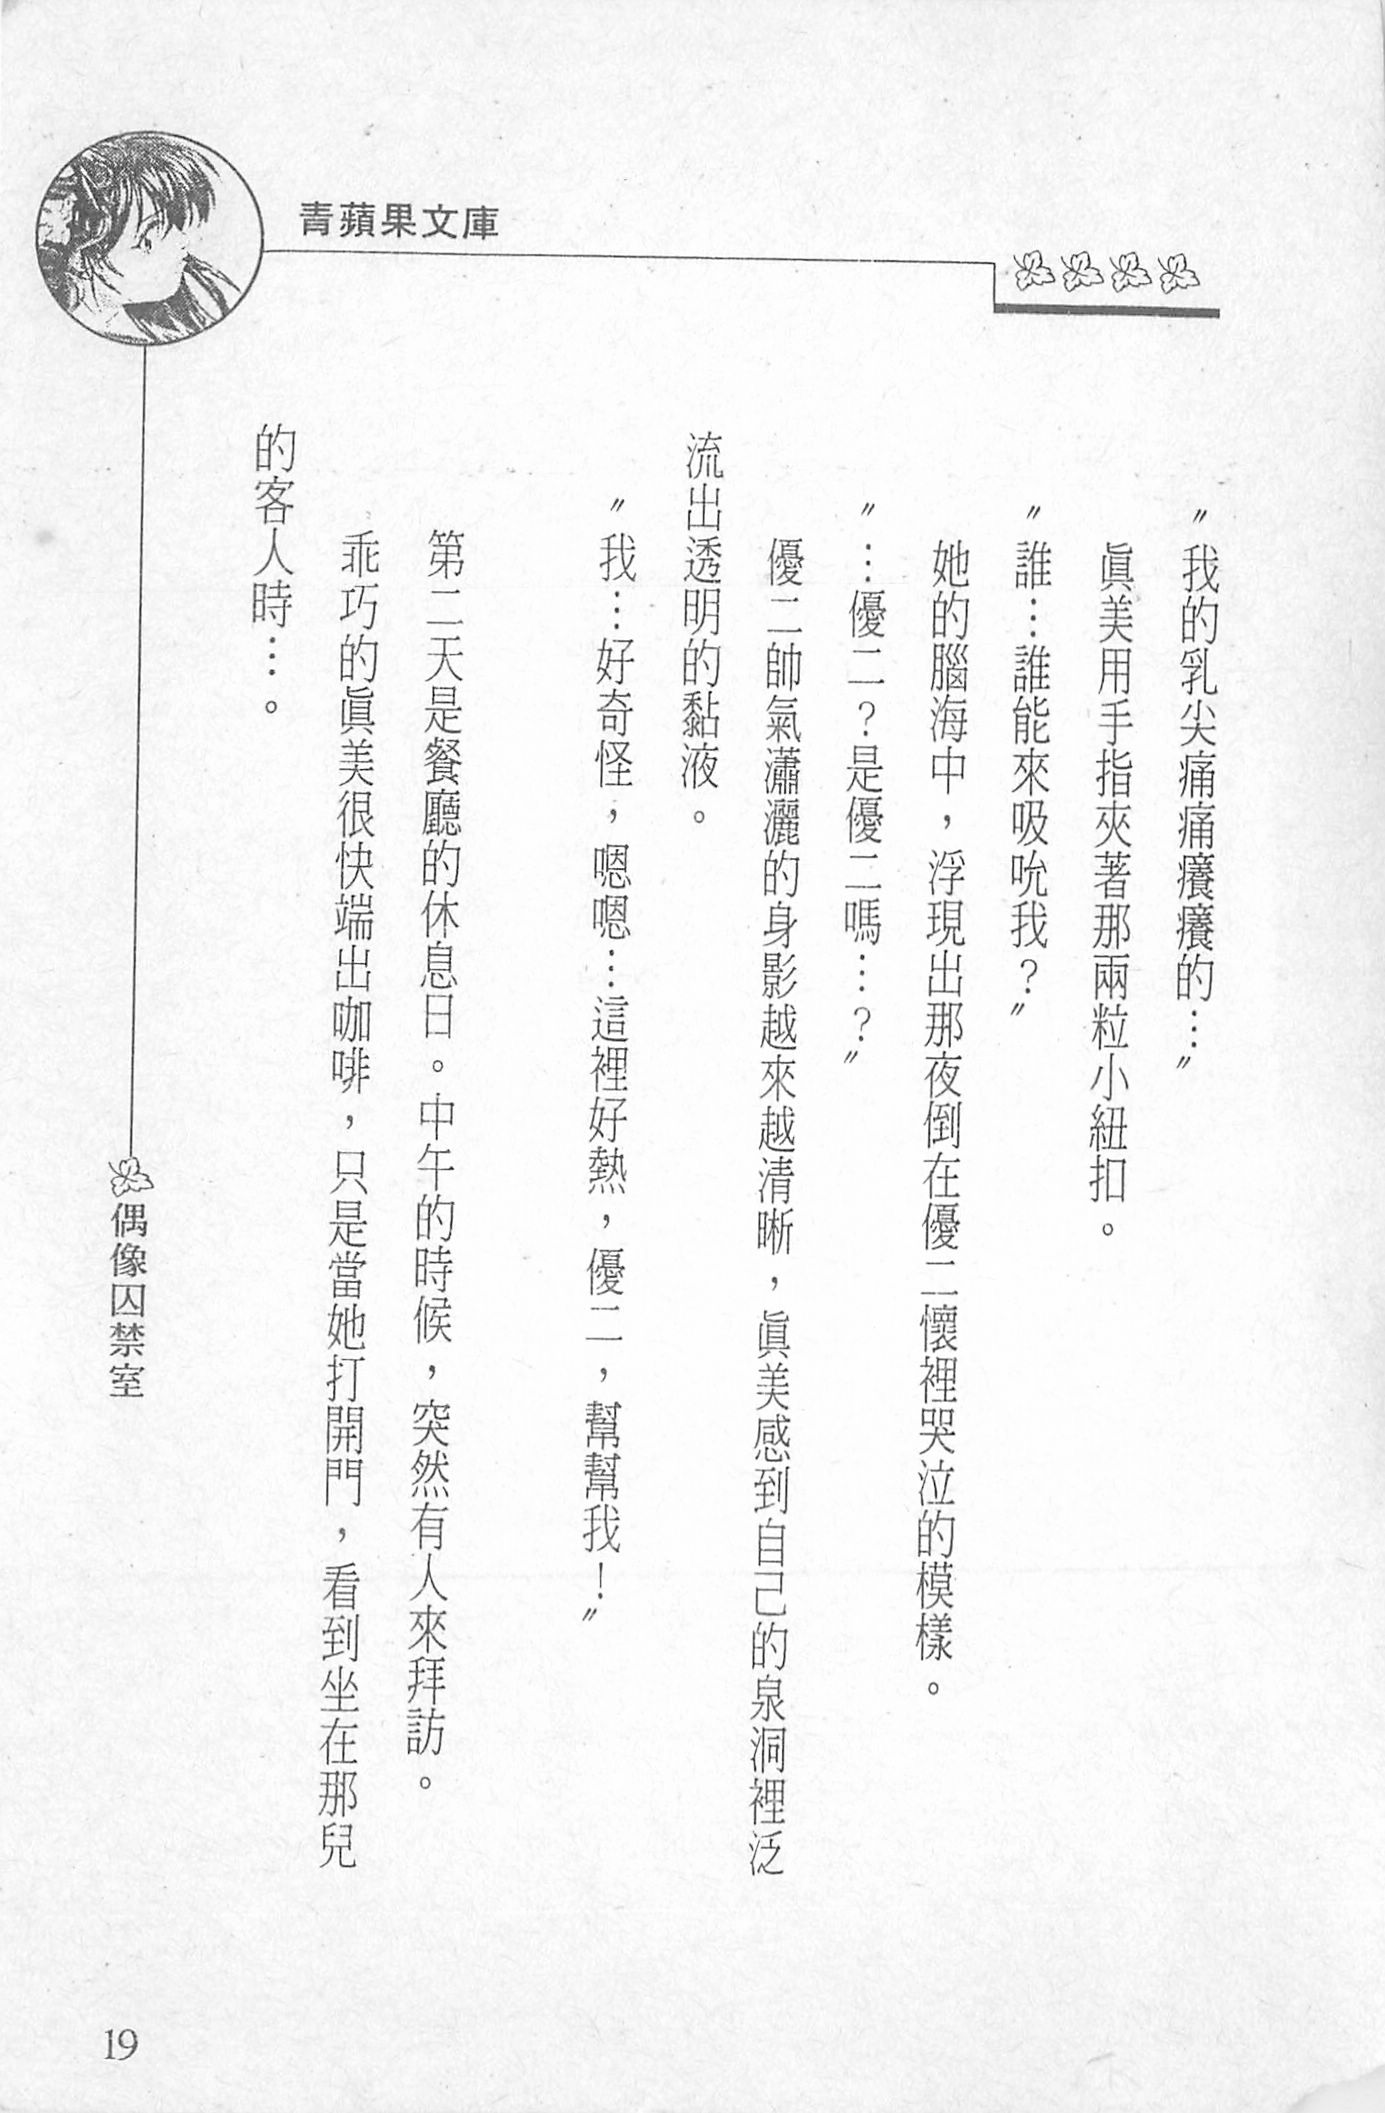 青蘋果文庫
〝我的乳尖痛痛癢癢的…〞
眞美用手指夾著那兩粒小紐扣。
〝誰…誰能來吸吮我？〞
她的腦海中，浮現出那夜倒在優二懷裡哭泣的模樣。
〝…優二？是優二嗎…？〞
優二帥氣瀟灑的身影越來越清晰，眞美感到自己的泉洞裡泛
流出透明的黏液。
〝我…好奇怪，嗯嗯…這裡好熱，優二，幫幫我！〞
第二天是餐廳的休息日。中午的時候，突然有人來拜訪。
乖巧的眞美很快端出咖啡，只是當她打開門，看到坐在那兒
的客人時…。
偶像囚禁室
19